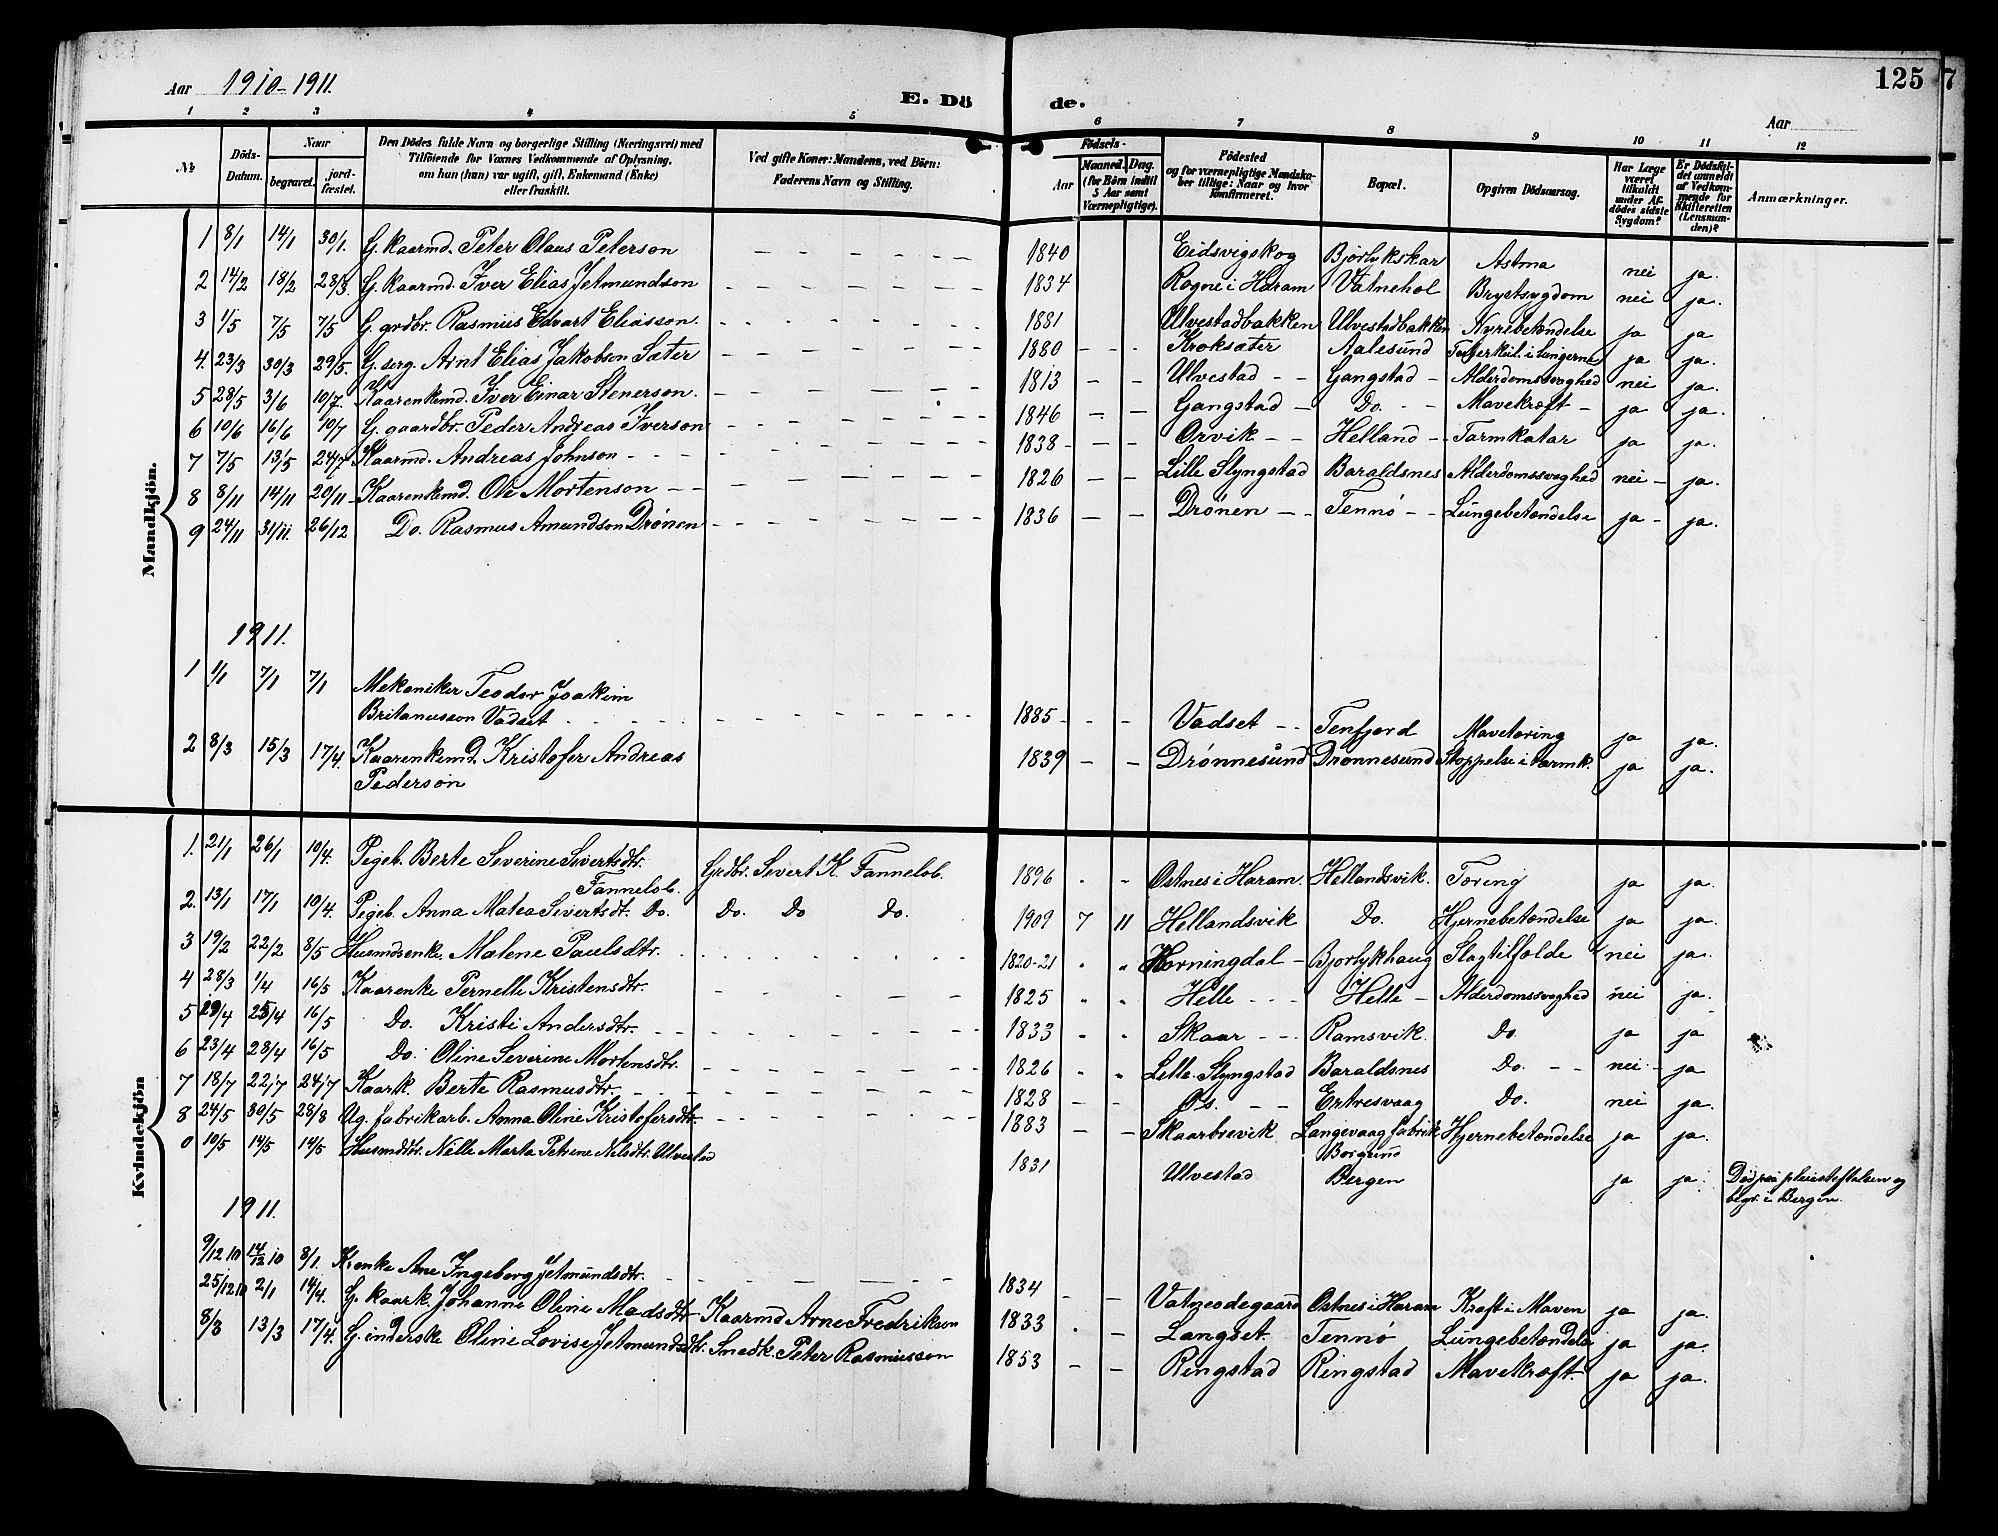 Aar 1910-1911.
E. Dö de.
125
7
Aar
1 2 3 4 5 6 7 8 9 10 11 12
No
Döds-Datum.
Naar
begravet.
jord-fæstet.
Den Dödes fulde Navn og borgerlige Stilling (Næringsvei) med
Tilföiende for Voxnes Vedkommende af Oplysning,
om han (hun) var ugift, gift, Enkemand (Enke)
eller fraskilt.
Ved gifte Koner: Mandens, ved Börn:
Faderens Navn og Stilling.
Födsels-
Aar
Maaned. Dag.
(for Börn indtil
5 Aar samt
Værnepligtige).
Födested
og for værnepligtige Mandska-
ber tillige: Naar og hvor
konfirmeret.
Bopæl.
Opgiven Dödsaarsag.
Har Læge
været
tilkaldt
under Af-
dödes sidste
Sygdom?
Er Dödsfal-
det anmeldt
af Vedkom-
mende for
Skifteretten
(Lensman-
den)?
Anmærkninger.
Mandkjön.
1 8/1 14/1 30/1. G. kaarmd. Peter Olaus Peterson 1840 Eidsvigskog Bjørlykskar Astma nei ja.
2 14/2 18/2 28/3. G. kaarmd. Iver Elias Jetmundson 1834 Rogne i Haram Vatnehol Brystsygdom nei ja.
3 1/5 7/5 7/5 G. grdbr. Rasmus Edvart Eliasson. 1881 Ulvestadbakken Ulvestadbakken Nyrebetændelse ja ja
4. 23/3 30/3 29/5. G. serg. Arnt Elias Jakobson Sæter 1880 Kroksæter Aalesund Tuberkul. i Lungerne ja ja.
5 28/5 3/6 10/7. Kaarenkemd. Iver Einar Stenerson. 1813 Ulvestad Gangstad Alderdomssvaghed nei ja.
6 10/6 16/6 10/7 G. gaardbr. Peder Andreas Iverson 1846 Gangstad Do. Mavekræft ja ja.
7 7/5 13/5 24/7 Kaarmd. Andreas Johnson 1838 Orvik Helland Tarmkatar ja ja.
8 8/11 14/11 20/11 Kaarenkemd. Ole Mortenson 1826 Lille Slyngstad Baraldsnes Alderdomssvaghed nei ja.
9 24/11 31/11. 26/12 Do. Rasmus Amundson Drønen 1836 Drønen Tennø Lungebetændelse ja ja.
1911.
1 1/1 7/1 7/1 Mekaniker Teodor Joakim
Britanusson Vadset 1885 Vadset Tenfjord Mavetæring ja ja.
2 8/3 15/3 17/4. Kaarenkemd. Kristofer Andreas
Pederson 1839 Drønnesund Drønnesund Stoppelse i Tarmk. ja ja.
Kvindekjön
1. 21/1 26/1 10/4. Pigeb. Berte Severine Sivertsdtr.
Tanneløb. Grdbr. Sivert K. Tanneløb. 1896 Ostnes i Haram. Hellandsvik. Tæring ja ja.
2. 13/1 17/1 10/4. Pigeb. Anna Matea Sivertsdt. Do. Do. Do Do. 1909 7 11 Hellandsvik Do. Hjernebetændelse ja ja.
3 19/2 22/2 8/5 Husmdsenke. Malene Paulsdtr. 1820-21 Horningdal Bjørlykhaug Slagtilfælde nei ja.
4 28/3 1/4 16/5 Kaarenke Pernelle Kristensdtr. 1825 Helle i Helle Alderdomssvaghed nei ja.
5 20/4 25/4 16/5 Do. Kristi Andersdtr. 1833 Skaar Ramsvik. Do. ja ja
6 23/4 28/4 16/5 Do. Oline Severine Mortensdtr. 1826 Lille Slyngstad Baraldsnes Do. nei ja
7 18/7 22/7 24/7 Kaark. Berte Rasmusdtr. 1828 Øs. Ertresvaag Do. nei ja.
8 24/5 30/5 28/8 Ug. fabrikarb. Anna Oline Kristofersdtr. 1883 Skaarbrevik Langevaag fabrik Borgund Hjernebetændelse ja ja.
0 10/5 14/5 14/5 Husmdtr. Nille Marta Petrine Nilsdtr. Ulvestad 1831 Ulvestad Bergen ja ja. Død paa pleiestiftelsen og
begr. i Bergen.
1911.
9/12 10 14/12 10 8/1. Kenke Ane Ingeborg Jetmundsdtr. 1834 Vatneødegaard Ostnes i Haram Kræft i Maven ja ja.
25/12 10 2/1 14/4. G. kaark. Johanne Oline Madsdtr Kaarmd Arne Fredrikson 1833 Langset. Tennø Lungebetændelse ja ja.
8/3 13/3 17/4. G. inderske Oline Lovise Jetmundsdtr. Snedk. Peter Rasmusson 1853 Ringstad Ringstad Mavekræft. ja ja.